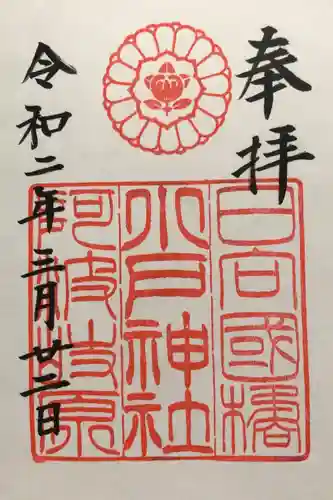 奉拝
日向國橘
小戸神社
阿波岐原
令和二年三月廿二日